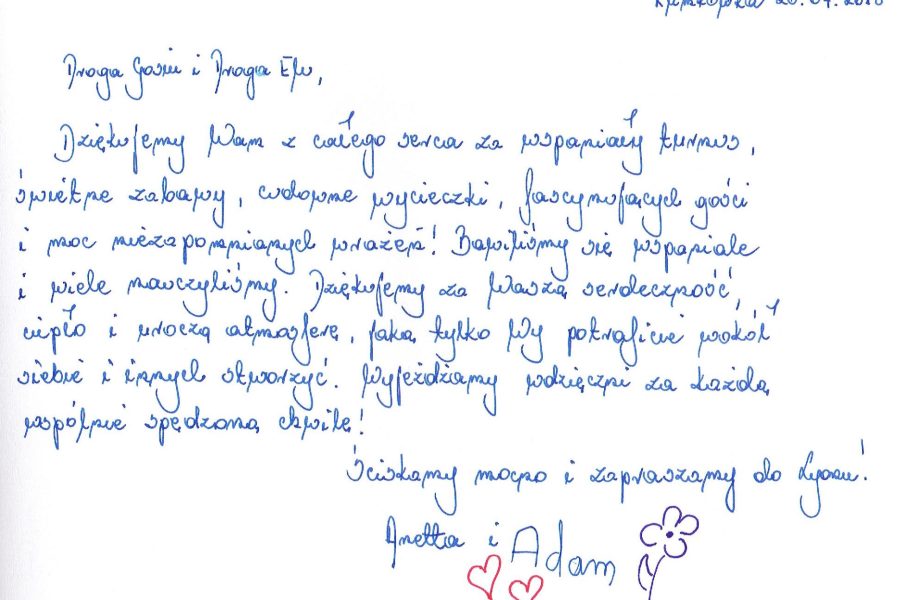 20.07.2018
Droga Gosiu i Droga Elu,
Dziękujemy Wam z całego serca za wspaniały turnus,
świetne zabawy, cudowne wycieczki, fascynujących gości
i moc niezapomnianych wrażeń! Bawiliśmy się wspaniale
i wiele nauczyliśmy. Dziękujemy za Waszą serdeczność,
ciepło i uroczą atmosferę, jaką tylko Wy potraficie wokół
siebie i innych stworzyć. Wyjeżdżamy wdzięczni za każdą
wspólnie spędzoną chwilę!
Ściskamy mocno i zapraszamy do Lyonu!
Anetta i Adam